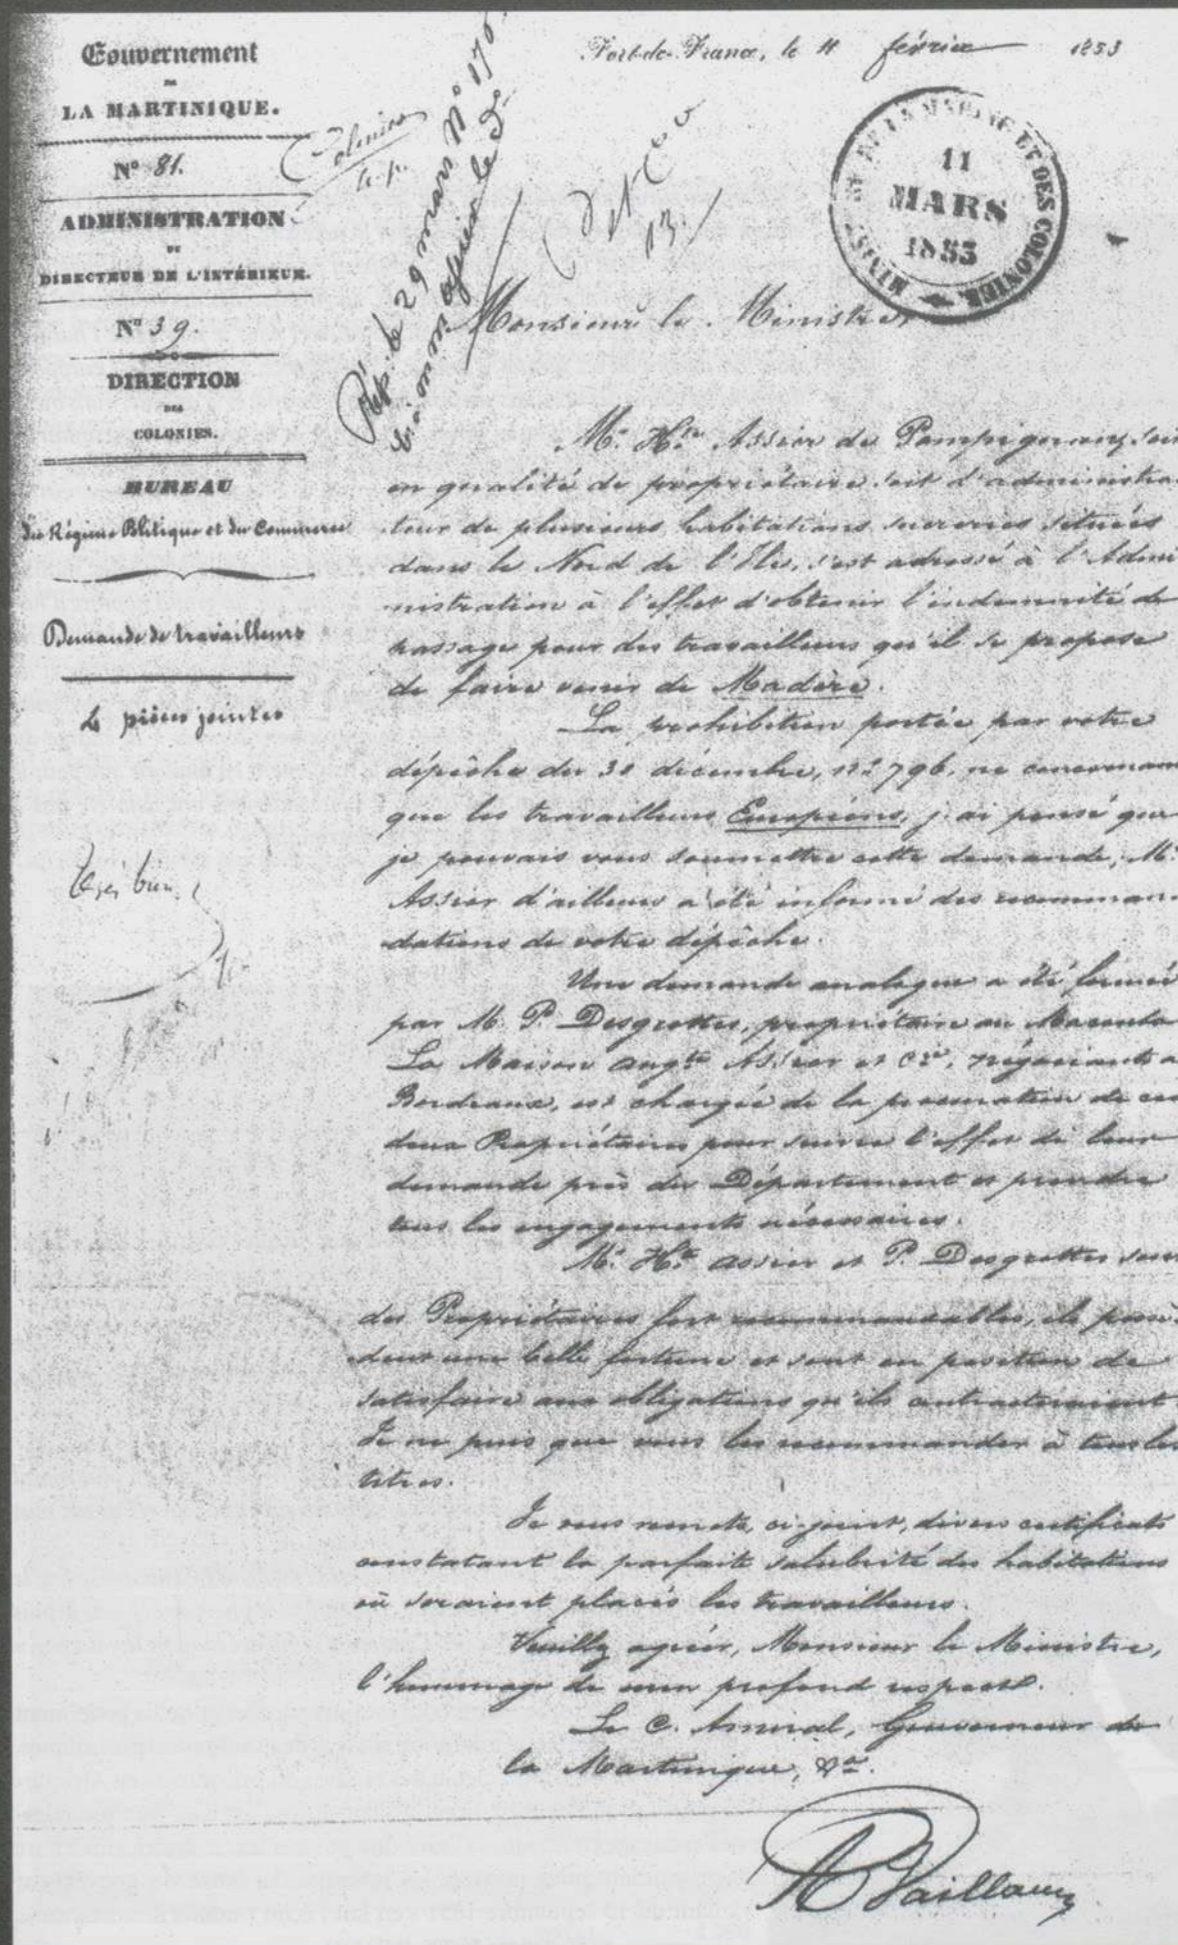 Gouvernement
DE
LA MARTINIQUE.
N° 81.
ADMINISTRATION
DE
DIRECTEUR DE L'INTÉRIEUR.
N° 39.
DIRECTION
DES
COLONIES.
BUREAU
du Régime Politique et du Commerce
Demande de travailleurs
4 pièces jointes
Colonies
Rép. le 29 mars N° 170
Fort-de-France, le 11 février 1853
MINIST DE LA MARINE ET DES COLONIES
11
MARS
1853
Monsieur le Ministre,
Mr. Hte Assier de Pompignan, soit
en qualité de propriétaire soit d'administra-
teur de plusieurs habitations sucreries situées
dans le Nord de l'Ile, s'est adressé à l'Admi
nistration à l'effet d'obtenir l'indemnité de
passage pour des travailleurs qu'il se propose
de faire venir de Madère.
La prohibition portée par votre
dépêche du 31 décembre, n° 796, ne concernant
que les travailleurs Européens, j'ai pensé que
je pouvais vous soumettre cette demande; Mr.
Assier d'ailleurs a été informé des recomman-
dations de votre dépêche.
Une demande analogue a été formée
par M. P. Desgrottes, propriétaire au Macouba
La Maison Augte Assier et Cie, négociants à
Bordeaux, est chargée de la procuration de ces
deux Propriétaires pour suivre l'effet de leur
demande près du Département et prendre
tous les engagements nécessaires.
Mr. Hte Assier et P. Desgrottes sont
des Propriétaires fort recommandables, ils possè-
dent une belle fortune et sont en position de
satisfaire aux obligations qu'ils contracteraient.
Je ne puis que vous les recommander à tous les
titres.
Je vous remets, ci-joint, divers certificats
constatant la parfaite salubrité des habitations
où seraient placés les travailleurs.
Veuillez agréer, Monsieur le Ministre,
l'hommage de mon profond respect.
Le C. Amiral, Gouverneur de
la Martinique, &a.
A Vaillant